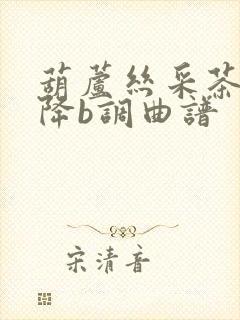 葫蘆絲采茶
降b調曲譜
宋清音